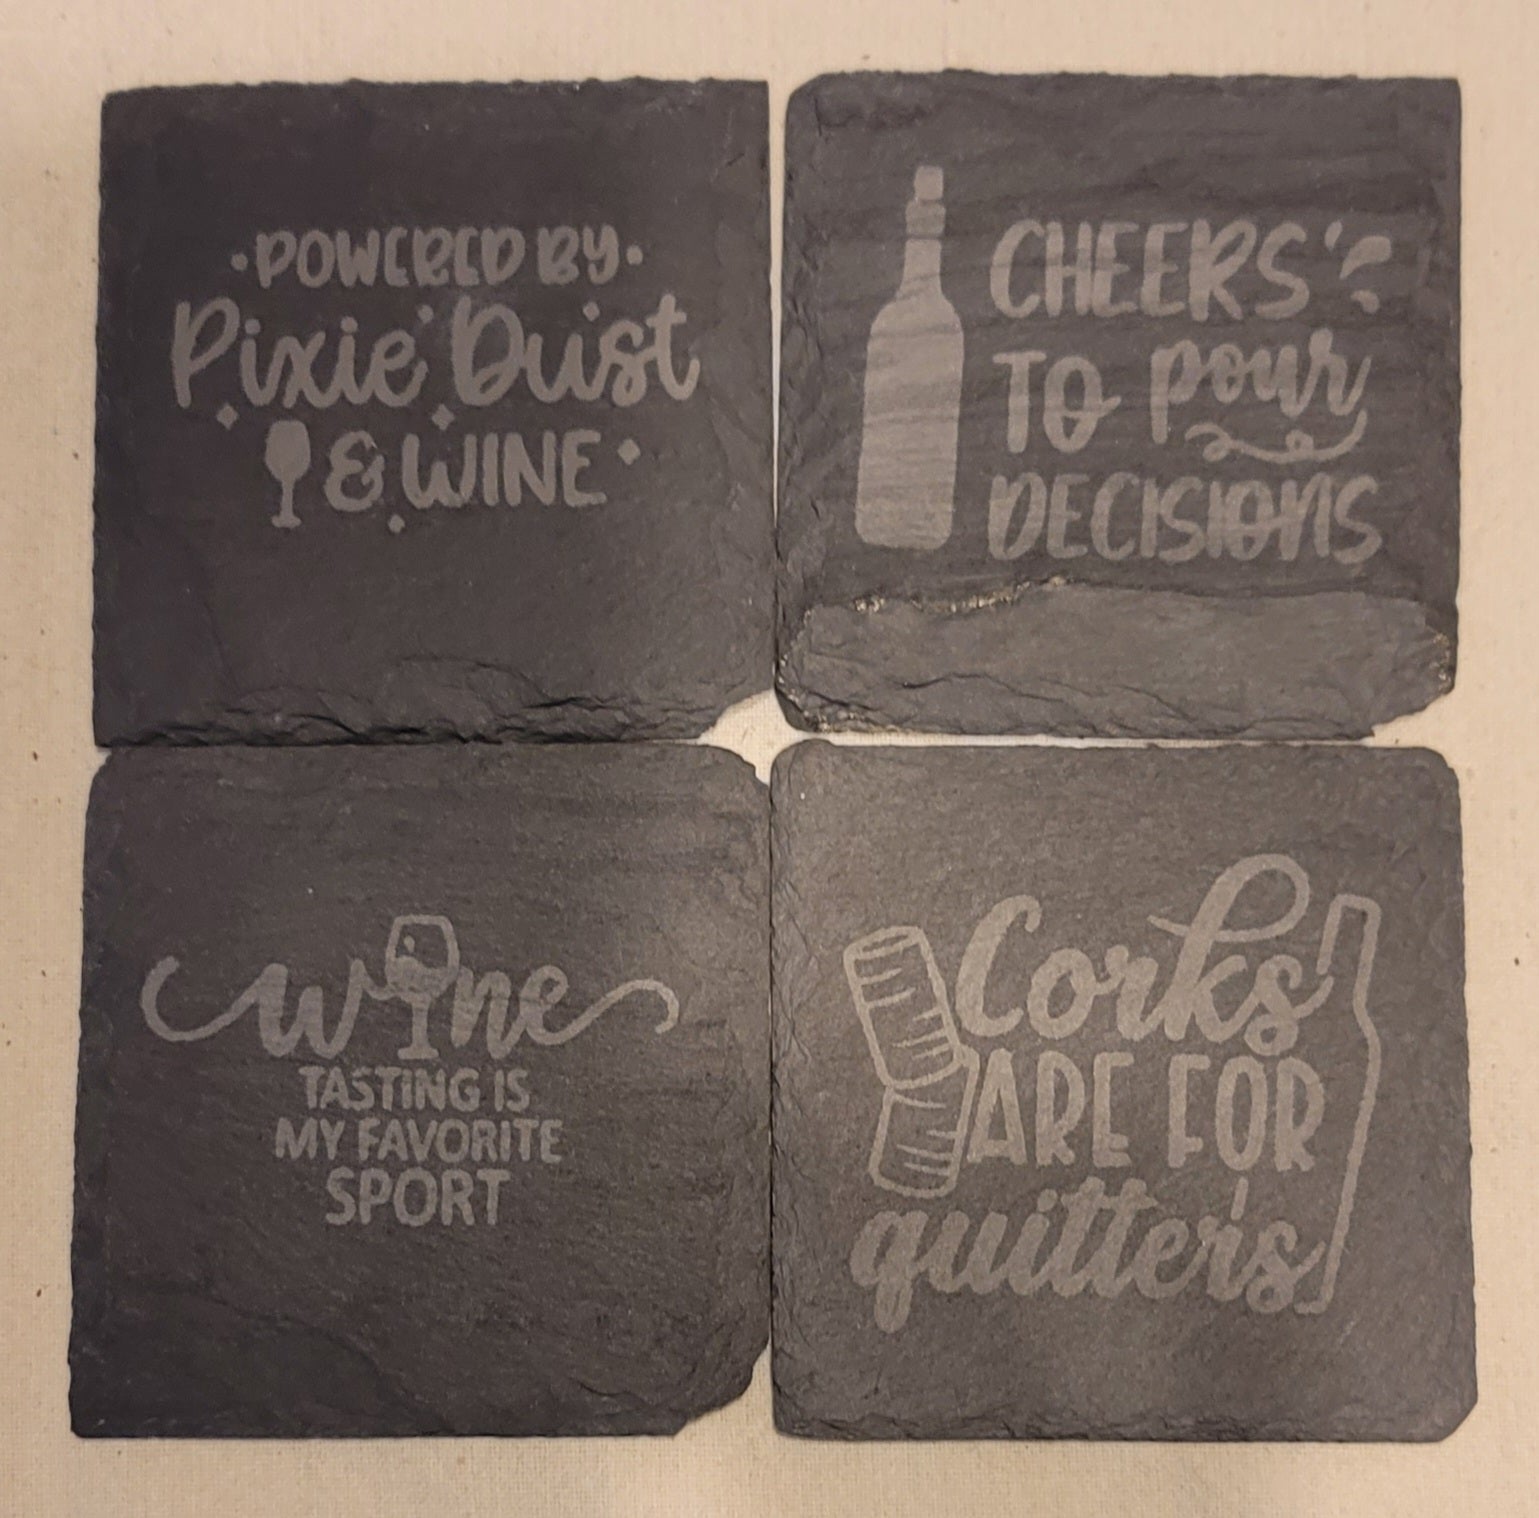 POWERED BY
Pixie Dust
& WINE
CHEERS
TO pour
DECISIONS
wine
TASTING IS
MY FAVORITE
SPORT
Corks
ARE FOR
quitters